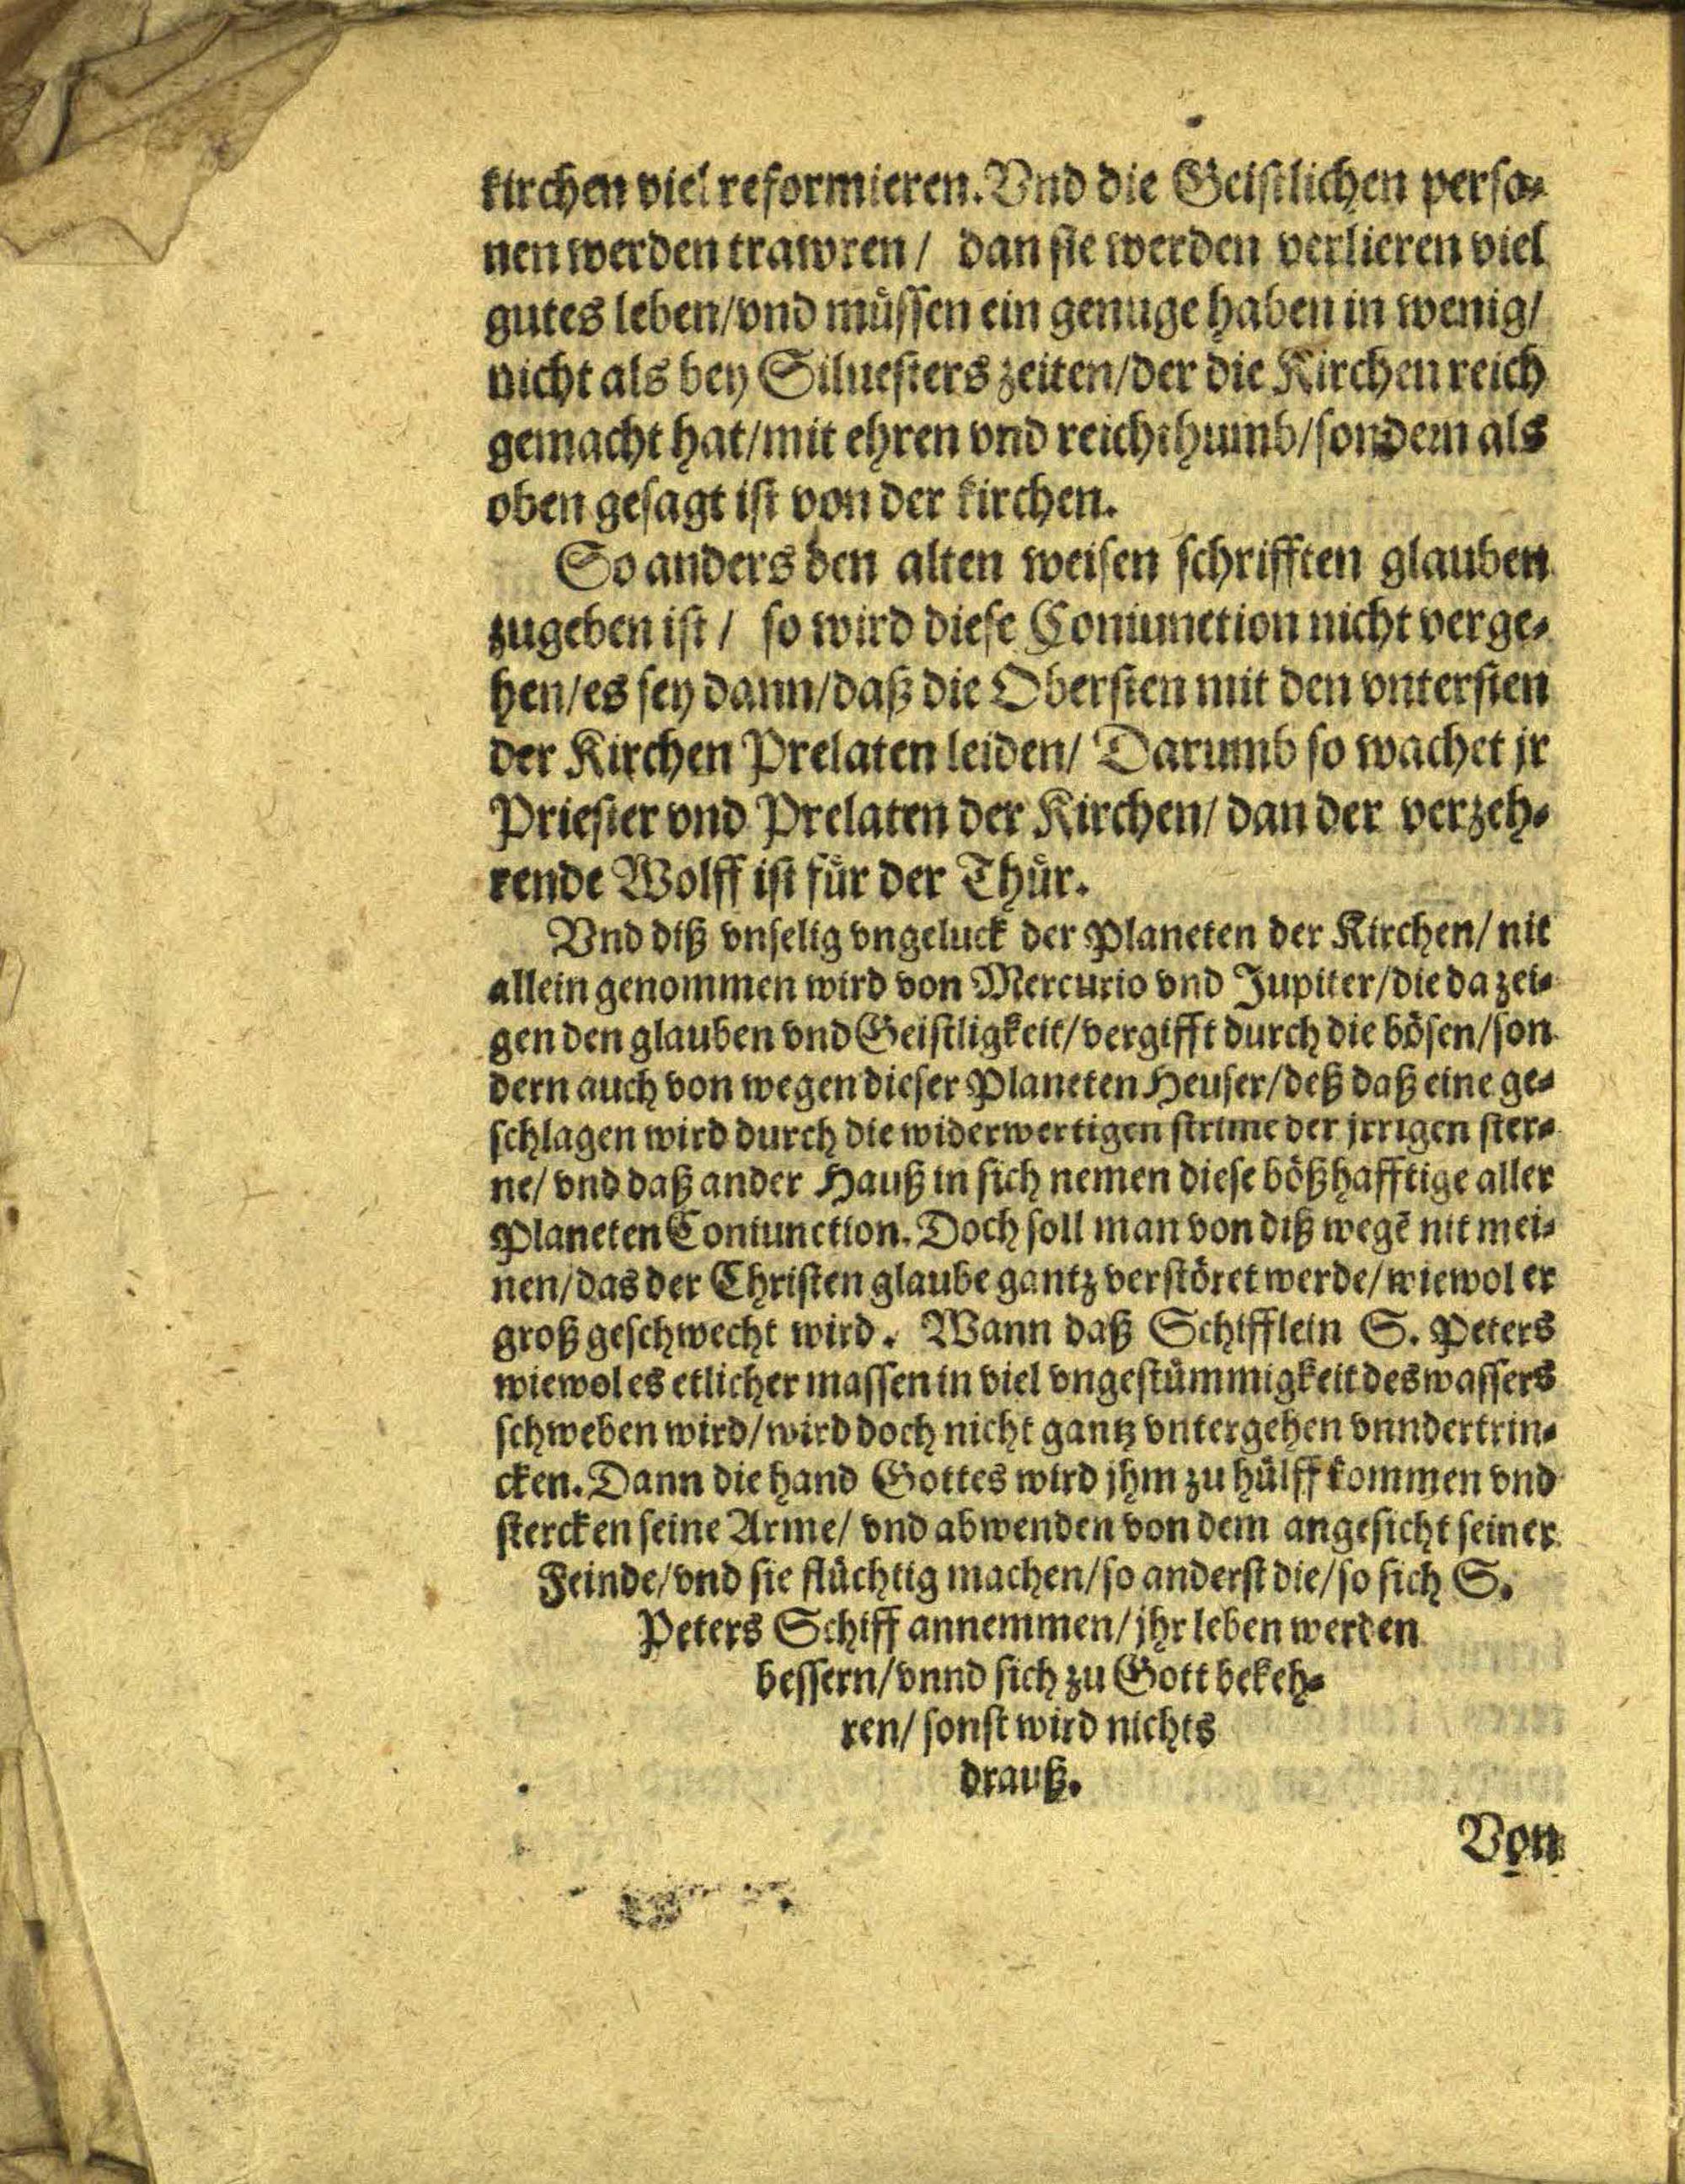 kirchen viel reformieren. Vnd die Geistlichen perso-
nen werden trawren / dan sie werden verlieren viel
gutes leben/vnd müssen ein genuge haben in wenig/
nicht als bey Siluesters zeiten/der die Kirchen reich
gemacht hat/mit ehren vnd reichthumb/sondern als
oben gesagt ist von der kirchen.
So anders den alten weisen schrifften glauben
zugeben ist / so wird diese Coniunction nicht verge-
hen/es sey dann/daß die Obersten mit den vntersten
der Kirchen Prelaten leiden/ Darumb so wachet jr
Priester vnd Prelaten der Kirchen/ dan der verzeh-
rende Wolff ist für der Thür.
Vnd diß vnselig vngeluck der Planeten der Kirchen/ nit
allein genommen wird von Mercurio vnd Jupiter/die da zei-
gen den glauben vnd Geistligkeit/vergifft durch die bösen/son
dern auch von wegen dieser Planeten Heuser/deß daß eine ge-
schlagen wird durch die widerwertigen strime der jrrigen ster-
ne/ vnd daß ander Hauß in sich nemen diese bößhafftige aller
Planeten Coniunction. Doch soll man von diß wegē nit mei-
nen/das der Christen glaube gantz verstöret werde/wiewol er
groß geschwecht wird. Wann daß Schifflein S. Peters
wiewol es etlicher massen in viel vngestümmigkeit des wassers
schweben wird/wird doch nicht gantz vntergehen vnndertrin-
cken. Dann die hand Gottes wird jhm zu hülff kommen vnd
stercken seine Arme/ vnd abwenden von dem angesicht seiner
Feinde/vnd sie flüchtig machen/so anderst die/so sich S.
Peters Schiff annemmen/jhr leben werden
bessern/vnnd sich zu Gott bekeh-
ren/ sonst wird nichts
drauß.
Von